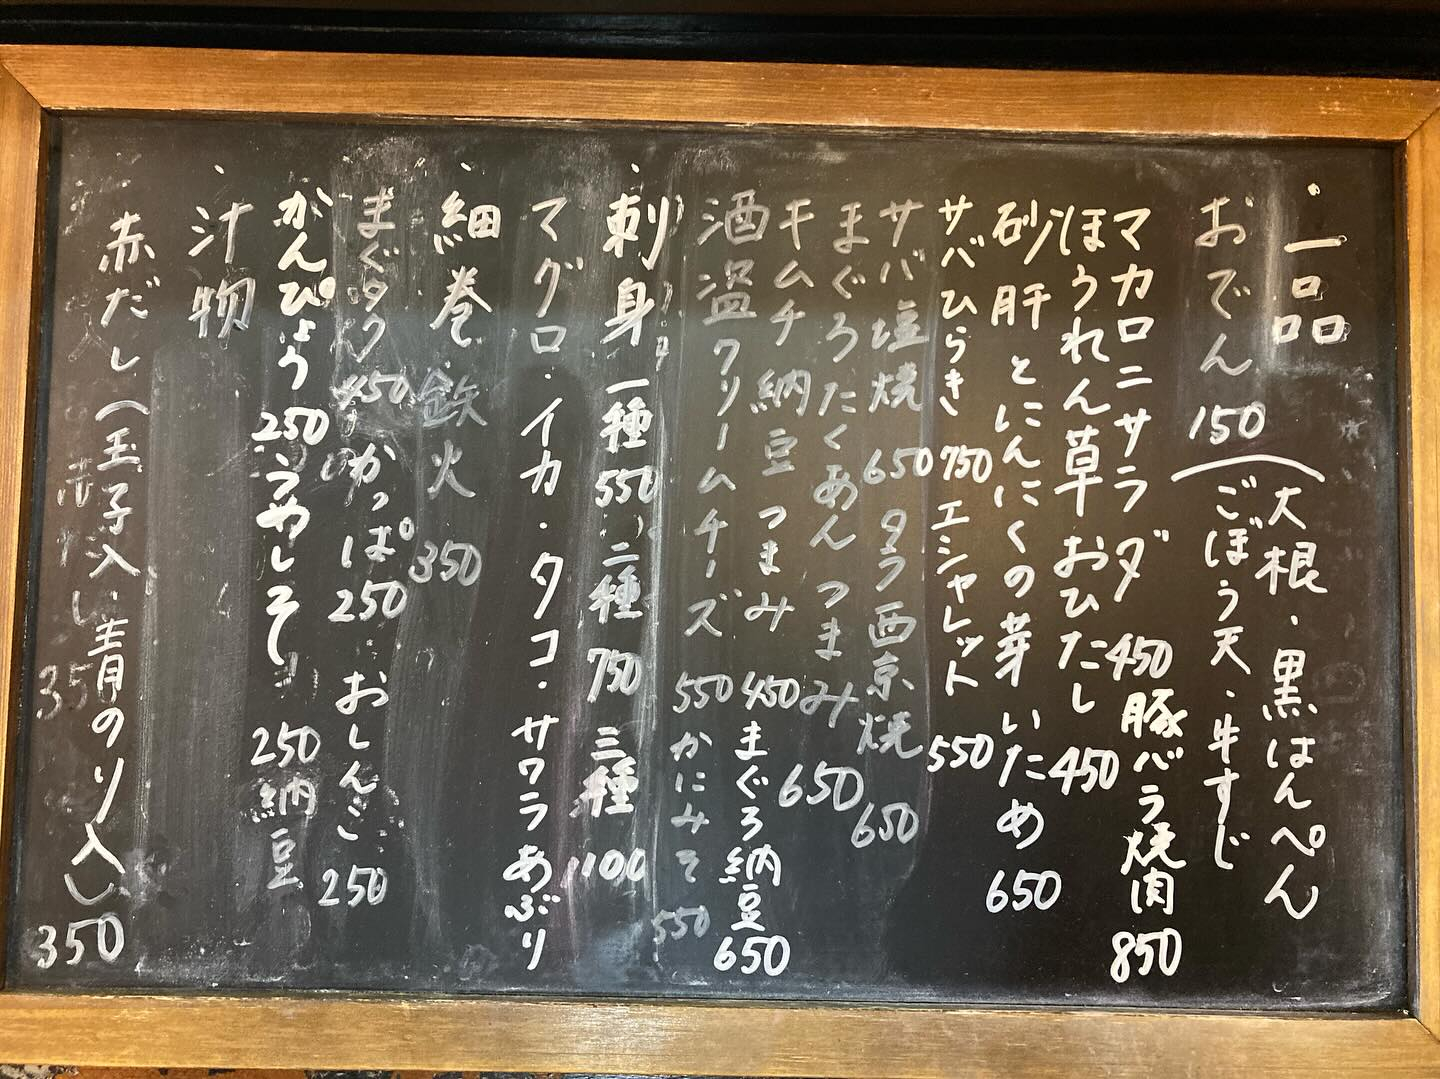 ・一品
おでん 150 (大根・黒はんぺん
ごぼう天・牛すじ
マカロニサラダ 450 豚バラ焼肉 850
ほうれん草おひたし 450
砂肝とにんにくの芽いため 650
サバひらき 750 エシャレット 550
サバ塩焼 650 タラ西京焼 650
まぐろたくあんつまみ 650
キムチ納豆つまみ 450 まぐろ納豆 650
酒盗クリームチーズ 550 かにみそ 550
・刺身 一種 550 二種 750 三種 1100
マグロ・イカ・タコ・サワラあぶり
・細巻 鉄火 350
まぐタク 450 かっぱ 250 おしんこ 250
かんぴょう 250 うめしそ 250 納豆
・汁物
赤だし(玉子入・青のり入) 350